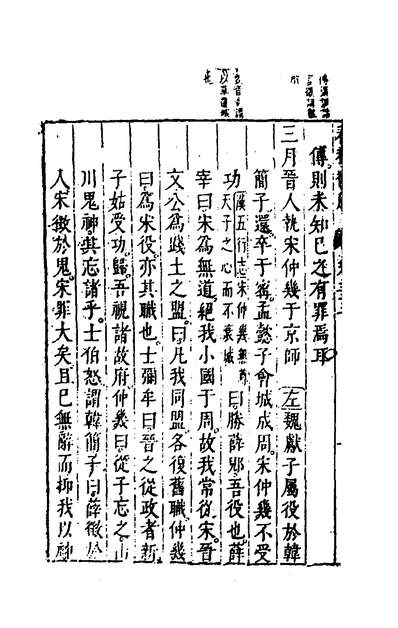 傳則未知已之有罪焉耳
三月晉人執宋仲幾于京師 左 魏獻子屬役於韓
簡子還卒于甯孟懿子會城成周宋仲幾不受
功 漢五行志宋仲幾無尊天子之心而不衰城 曰滕薛郳吾役也薛
宰曰宋爲無道絕我小國于周故我常從宋晉
文公爲踐土之盟曰凡我同盟各復舊職仲幾
曰爲宋役亦其職也士彌牟曰晉之從政者新
子姑受功歸吾視諸故府仲幾曰從子忘之山
川鬼神其忘諸乎士伯怒謂韓簡子曰薛徵於
人宋徵於鬼宋罪大矣且已無辭而抑我以神